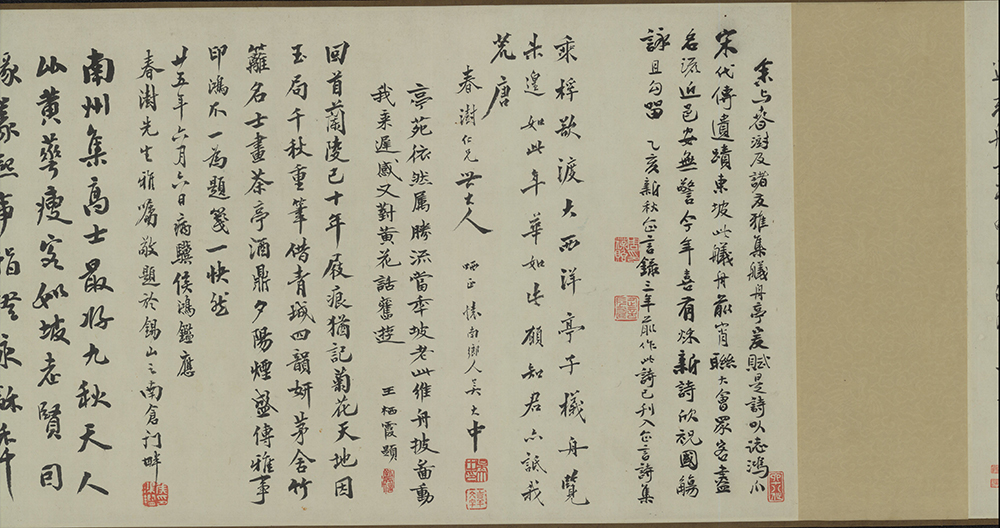 余与春澍及諸友雅集艤舟亭爰賦是詩以志鴻爪
宋代傳遺蹟東坡此艤舟前宵聯大會眾客盡
名流近邑安無警今年喜有秋新詩欣祝國觴
詠且勾留 乙亥新秋 三年前作此詩已刊入 言詩集
乘桴欲渡大西洋亭子檥舟覽
未遑如此年華如此願知君亦詆我
荒唐
春澍仁兄世大人 哂正 鄉人吳大中
亭苑依然属勝流當年坡老此維舟披畵動
我来遲感又對黃花話舊遊 王栖霞題
回首蘭陵已十年屐痕猶記菊花天地因
玉局千秋重筆借青城四韻妍茅舍竹
籬名士畫茶亭酒鼎夕陽煙盛傳雅事
印鴻爪一為題箋一快然
廿五年六月六日病驥侯鴻鑑應
春澍先生雅囑敬題於錫山之南倉门畔
南州集高士最好九秋天人
以黃華瘦客如坡老賢同